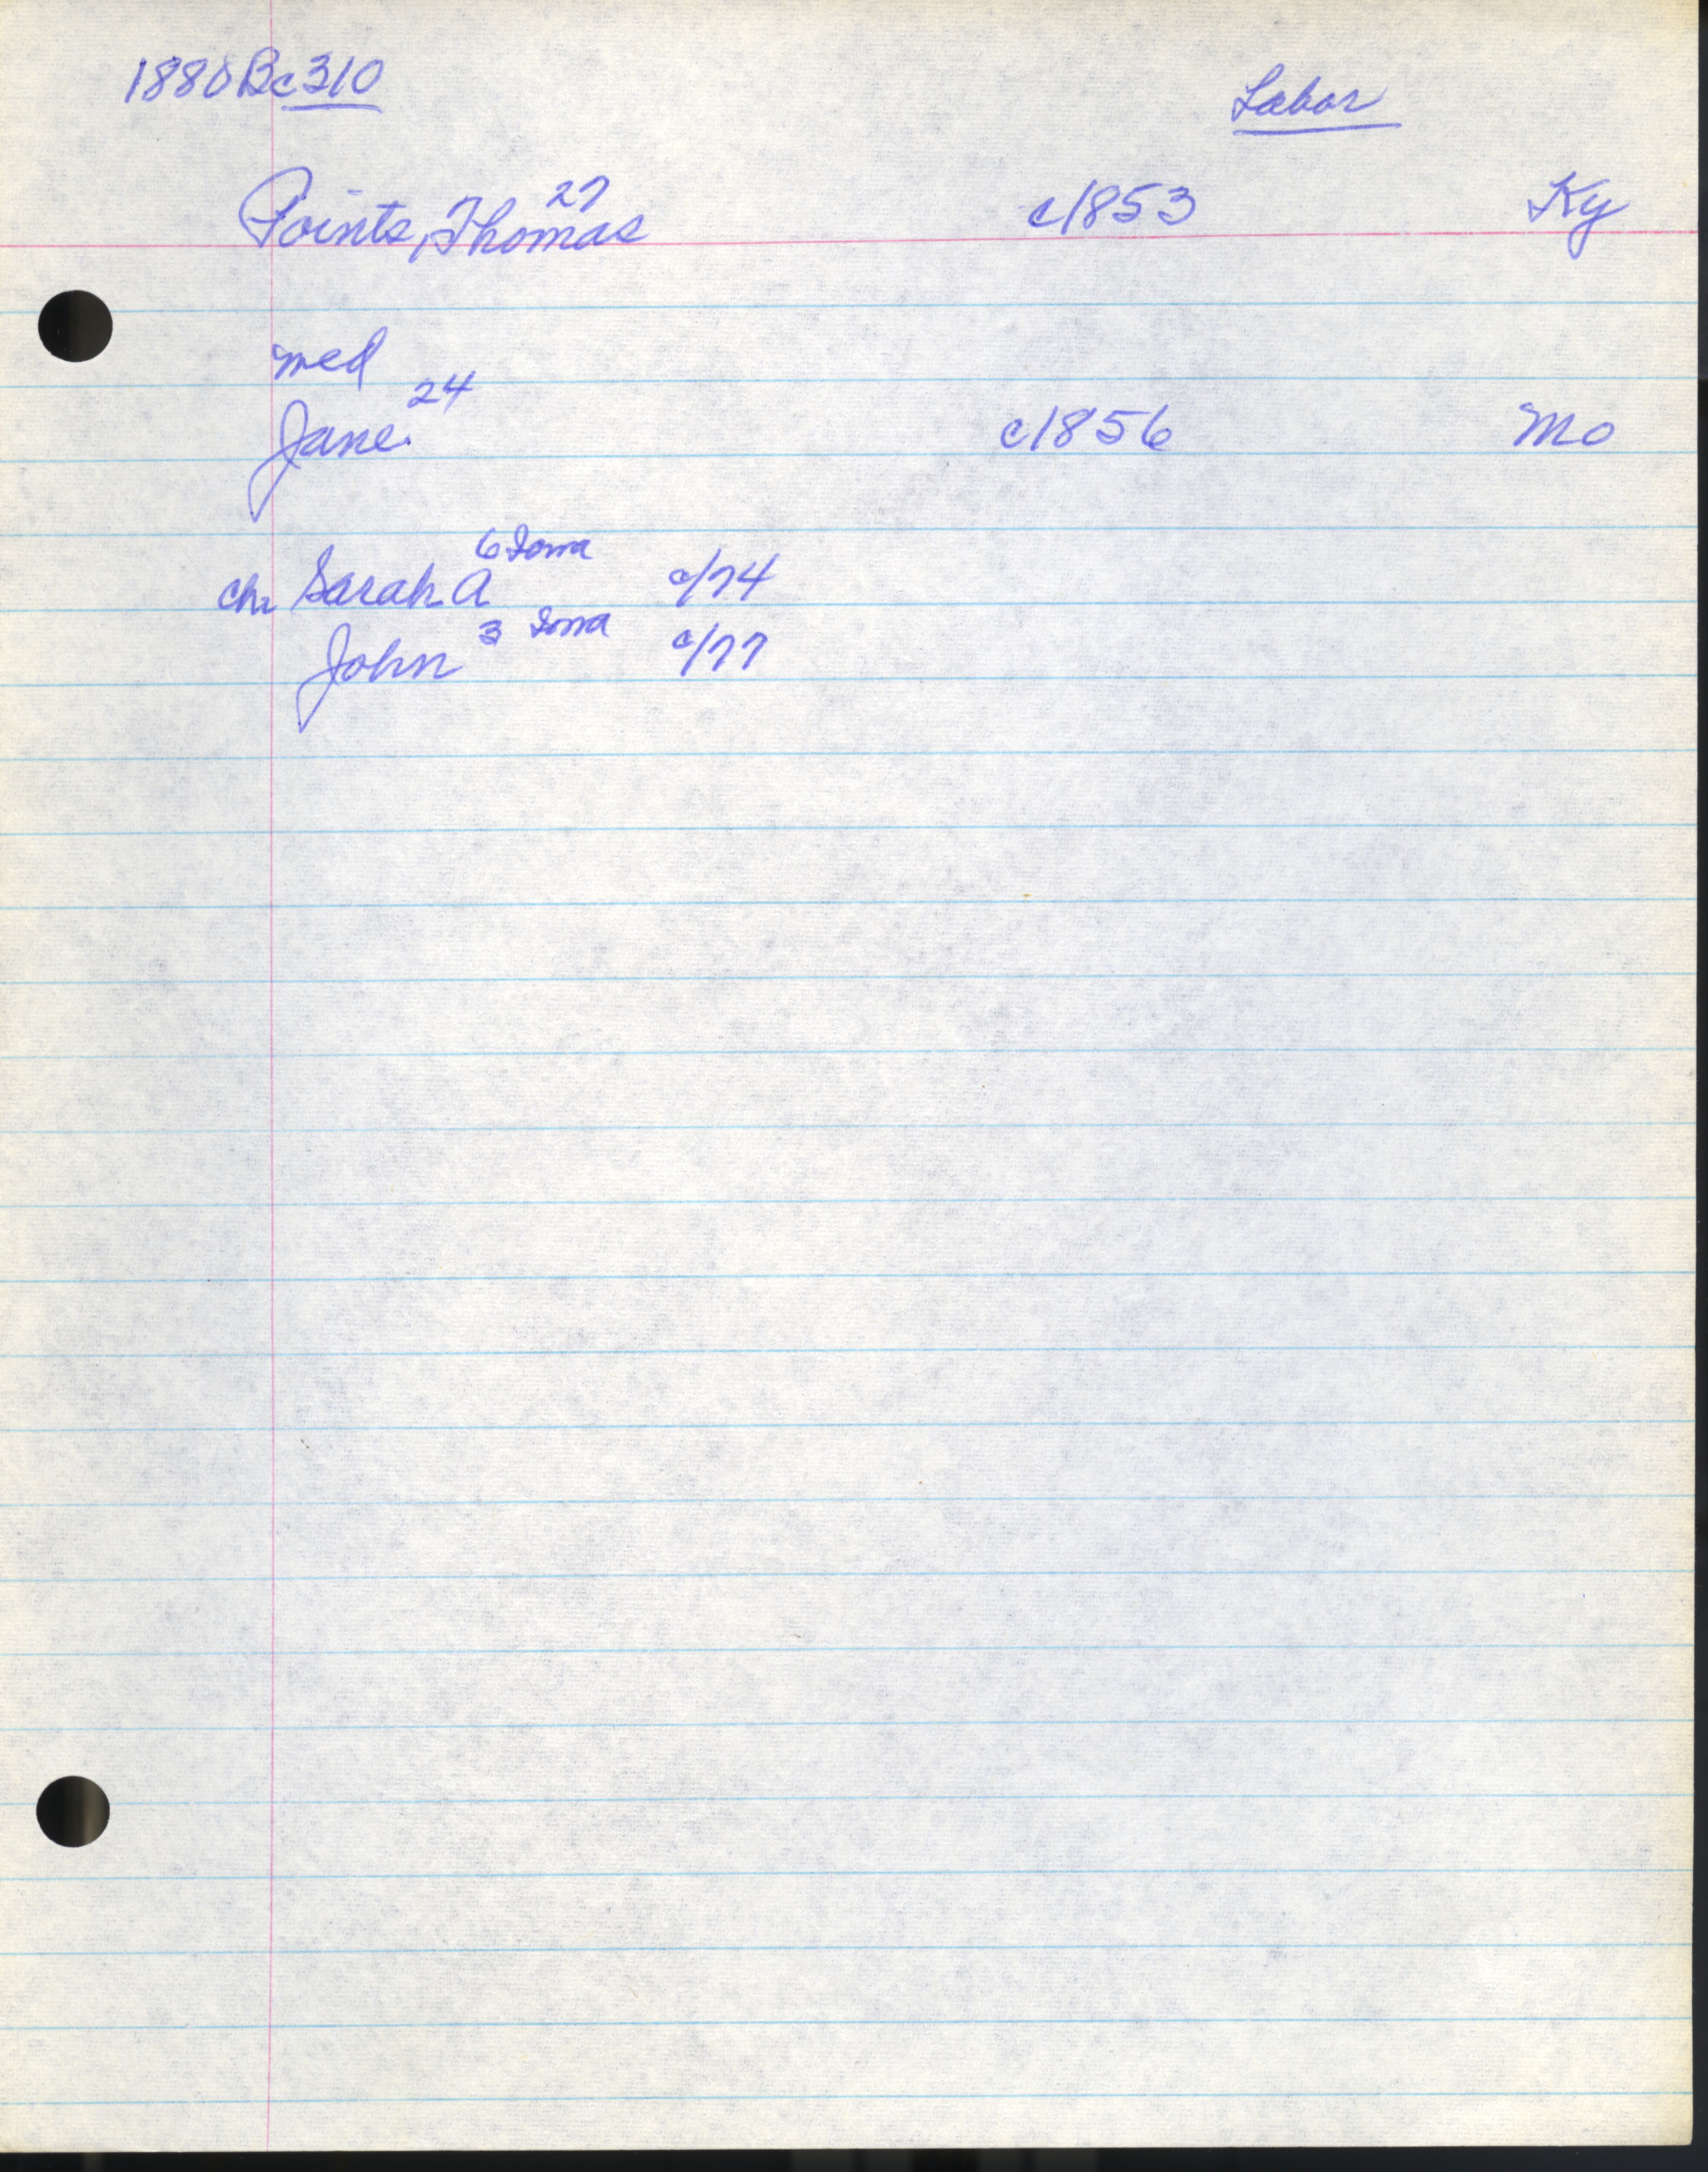 1880 Bc 310 Labor
Points, Thomas 27 c/853 Ky
med
Jane 24 c/856 Mo
ch. Sarah A 6 Iowa c/74
John 3 Iowa c/77